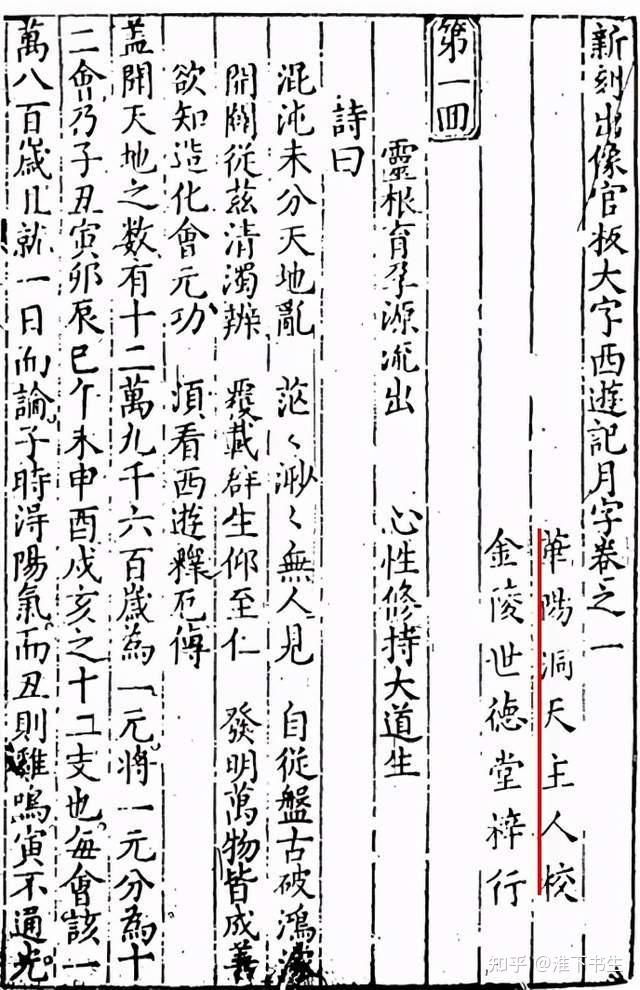 新刻出像官板大字西遊記月字卷之一
華陽洞天主人校
金陵世德堂梓行
第一回
靈根育孕源流出 心性修持大道生
詩曰
混沌未分天地亂 茫〻渺〻無人見 自從盤古破鴻濛
開闢從茲清濁辨 覆載群生仰至仁 發明萬物皆成善
欲知造化會元功 須看西遊釋厄傳
盖聞天地之数有十二萬九千六百歲為一元將一元分為十
二會乃子丑寅卯辰巳午未申酉戌亥之十二支也每會該一
萬八百歲且就一日而論子時得陽氣而丑則雞鳴寅不通光
知乎 @淮下书生